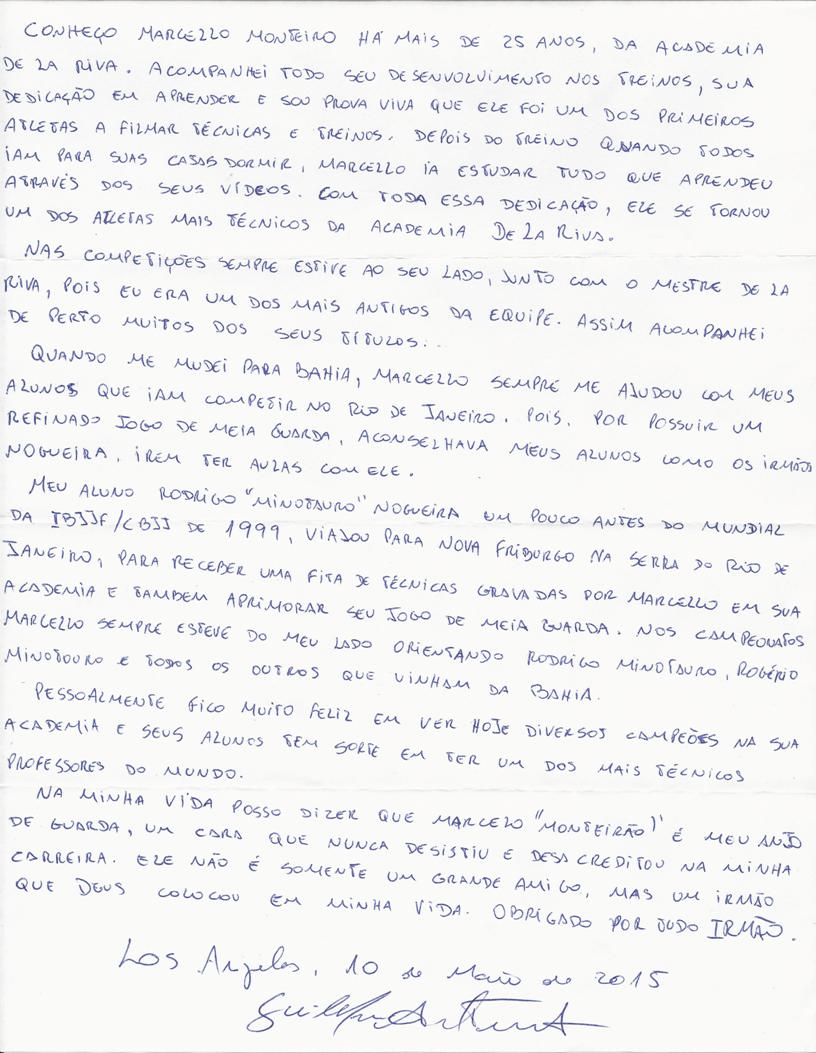 CONHEÇO MARCELLO MONTEIRO HÁ MAIS DE 25 ANOS, DA ACADEMIA
DE LA RIVA. ACOMPANHEI TODO SEU DESENVOLVIMENTO NOS TREINOS, SUA
DEDICAÇÃO EM APRENDER E SOU PROVA VIVA QUE ELE FOI UM DOS PRIMEIROS
ATLETAS A FILMAR TÉCNICAS E TREINOS. DEPOIS DO TREINO QUANDO TODOS
IAM PARA SUAS CASAS DORMIR, MARCELLO IA ESTUDAR TUDO QUE APRENDEU
ATRAVÉS DOS SEUS VÍDEOS. COM TODA ESSA DEDICAÇÃO, ELE SE TORNOU
UM DOS ATLETAS MAIS TÉCNICOS DA ACADEMIA DE LA RIVA.
NAS COMPETIÇÕES SEMPRE ESTIVE AO SEU LADO, JUNTO COM O MESTRE DE LA
RIVA, POIS EU ERA UM DOS MAIS ANTIGOS DA EQUIPE. ASSIM ACOMPANHEI
DE PERTO MUITOS DOS SEUS TÍTULOS...
QUANDO ME MUDEI PARA BAHIA, MARCELLO SEMPRE ME AJUDOU COM MEUS
ALUNOS QUE IAM COMPETIR NO RIO DE JANEIRO. POIS, POR POSSUIR UM
REFINADO JOGO DE MEIA GUARDA, ACONSELHAVA MEUS ALUNOS COMO OS IRMÃOS
NOGUEIRA, IREM TER AULAS COM ELE.
MEU ALUNO RODRIGO "MINOTAURO" NOGUEIRA UM POUCO ANTES DO MUNDIAL
DA IBJJF/CBJJ DE 1999, VIAJOU PARA NOVA FRIBURGO NA SERRA DO RIO DE
JANEIRO, PARA RECEBER UMA FITA DE TÉCNICAS GRAVADAS POR MARCELLO EM SUA
ACADEMIA E TAMBEM APRIMORAR SEU JOGO DE MEIA GUARDA. NOS CAMPEONATOS
MARCELLO SEMPRE ESTEVE DO MEU LADO ORIENTANDO RODRIGO MINOTAURO, ROGÉRIO
MINOTOURO E TODOS OS OUTROS QUE VINHAM DA BAHIA.
PESSOALMENTE FICO MUITO FELIZ EM VER HOJE DIVERSOS CAMPEÕES NA SUA
ACADEMIA E SEUS ALUNOS TEM SORTE EM TER UM DOS MAIS TÉCNICOS
PROFESSORES DO MUNDO.
NA MINHA VIDA POSSO DIZER QUE MARCELO "MONTEIRÃO" É MEU ANJO
DE GUARDA, UM CARA QUE NUNCA DESISTIU E DESACREDITOU NA MINHA
CARREIRA. ELE NÃO É SOMENTE UM GRANDE AMIGO, MAS UM IRMÃO
QUE DEUS COLOCOU EM MINHA VIDA. OBRIGADO POR TUDO IRMÃO.
Los Angeles, 10 de Maio de 2015